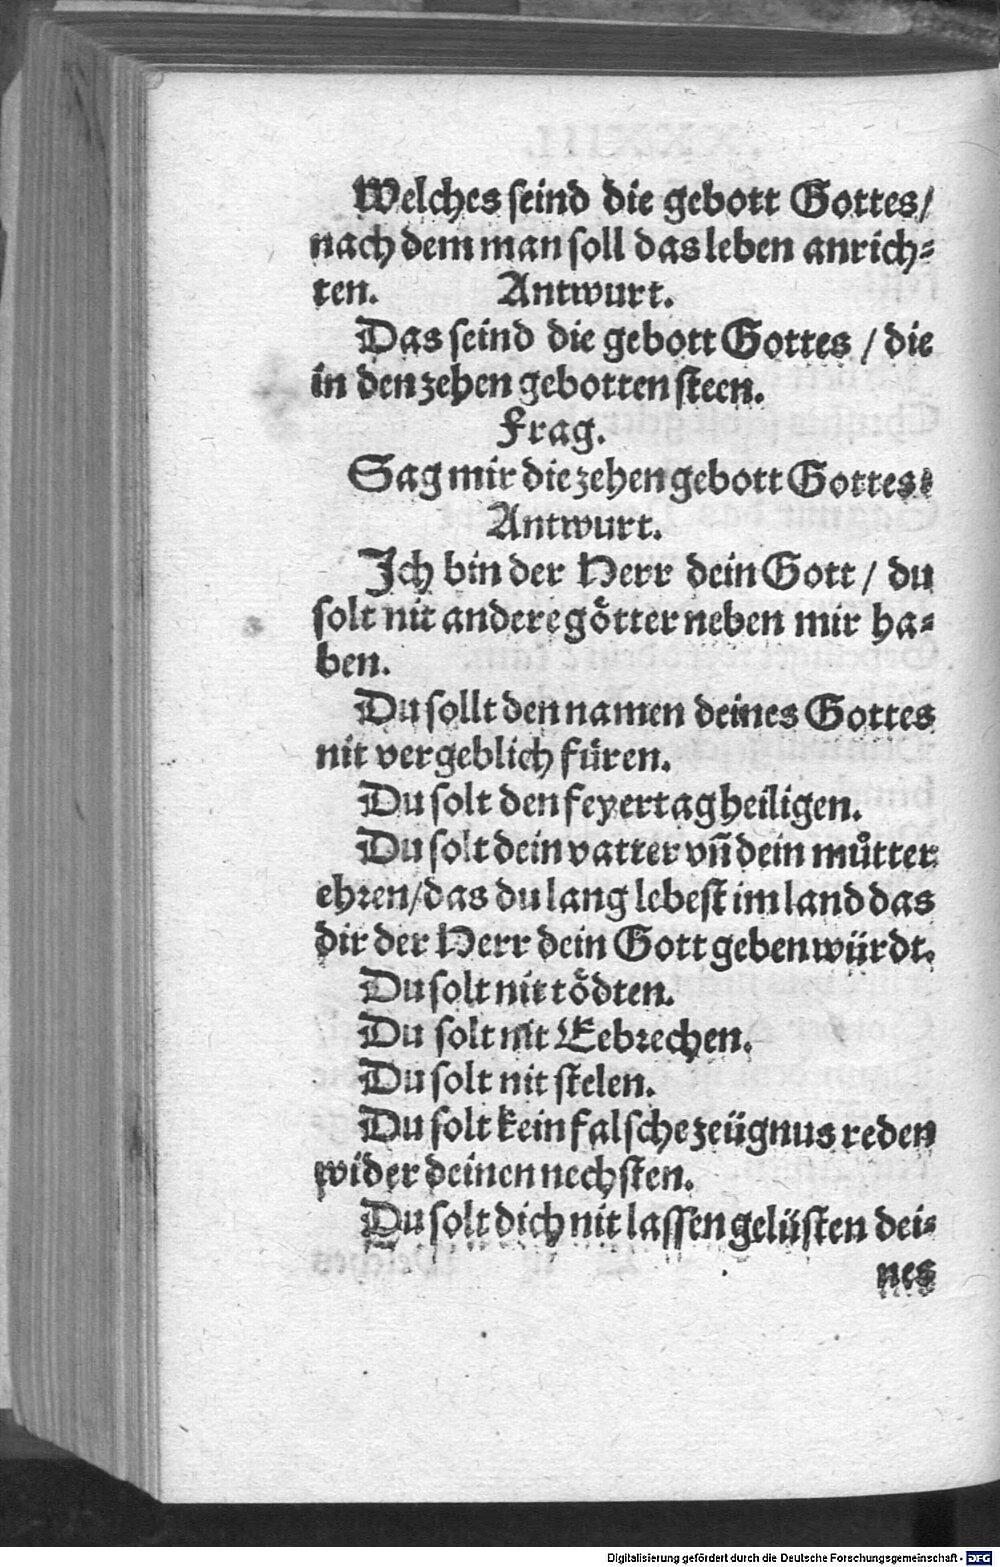 Welches seind die gebott Gottes/
nach dem man soll das leben anrich⸗
ten. Antwurt.
Das seind die gebott Gottes / die
in den zehen gebotten steen.
Frag.
Sag mir die zehen gebott Gottes:
Antwurt.
Ich bin der Herr dein Gott / du
solt nit andere götter neben mir ha⸗
ben.
Du sollt den namen deines Gottes
nit vergeblich füren.
Du solt den feyertag heiligen.
Du solt dein vatter vñ dein můtter
ehren/das du lang lebest im land das
dir der Herr dein Gott geben würdt.
Du solt nit tödten.
Du solt nit Eebrechen.
Du solt nit stelen.
Du solt kein falsche zeügnus reden
wider deinen nechsten.
Du solt dich nit lassen gelüsten dei⸗
nes
Digitalisierung gefördert durch die Deutsche Forschungsgemeinschaft - DFG